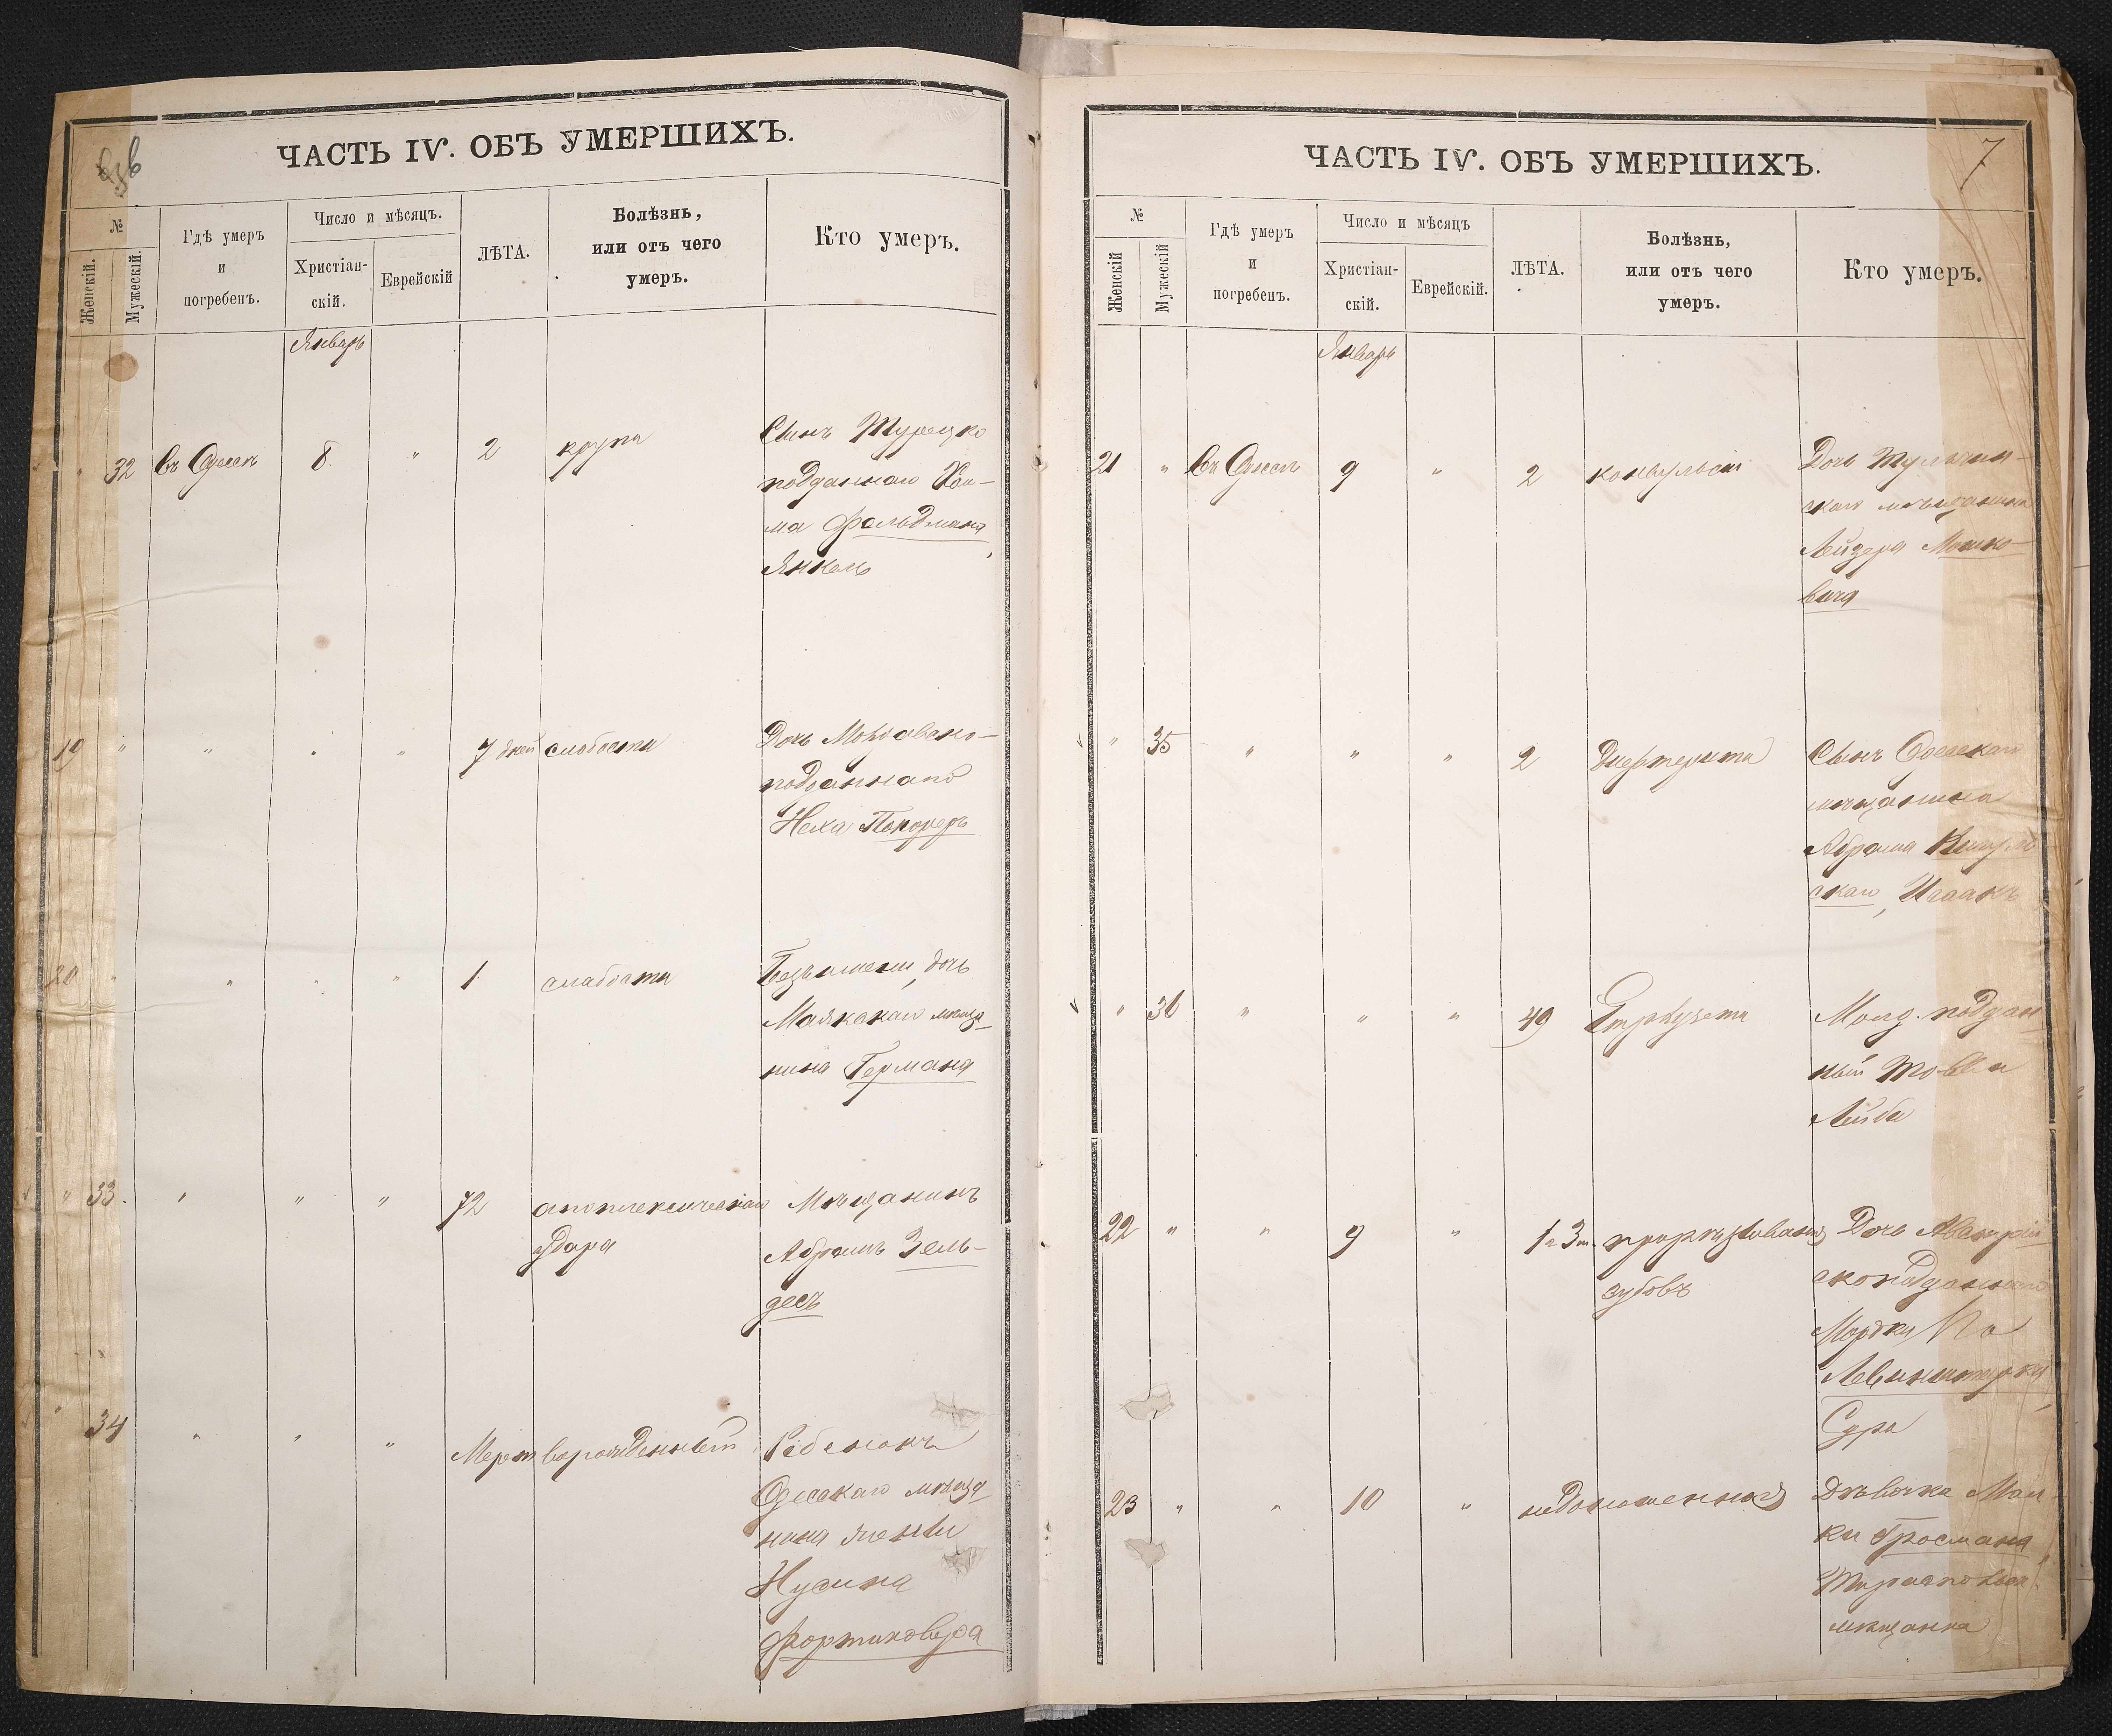 ЧАСТЬ IV. ОБЪ УМЕРШИХЪ.
№
Женскій.
Мужескій.
Гдѣ умеръ
и
погребенъ.
Число и мѣсяцъ.
Христіан-
скій.
Еврейскій
ЛѢТА.
Болѣзнь,
или отъ чего
умеръ.
Кто умеръ.
Январь
32 въ Одессѣ 8. " 2 крупа
Сынъ Турецко
подданнаго Хаи-
ма Фельдмана,
Янкель
19 " " " " 7 дней слабости
Дочь Молдавско-
подданнаго
Неха
20 " " " " 1 слабости
Безъ имени, дочь
Маякскаго мѣща
нина Германа
" 33. " " " 72 апоплексическаго
удара
Мѣщанинъ
Абрамъ Зель-
десъ
" 34 " " " Мертворожденный
Ребенокъ
Одесскаго мѣща
нина
Нусина
ЧАСТЬ IV. ОБЪ УМЕРШИХЪ.
7
№
Женскій
Мужескій
Гдѣ умеръ
и
погребенъ.
Число и мѣсяцъ
Христіан-
скій.
Еврейскій.
ЛѢТА.
Болѣзнь,
или отъ чего
умеръ.
Кто умеръ.
Январь
21 " въ Одессѣ 9 " 2 конвульсіи
Дочь Тульчин-
скаго мѣщанина
Лейзера Мошко-
вича
" 35 " " " 2 Дифтерита
Сынъ Одесскаго
мѣщанина
Абрама
скаго, Исаакъ
" 36 " " " 49
Молд. поддан
ный Товви
Лейба
22 " " 9 " 1 г. 3 м. прорѣзыванія
зубовъ
Дочь Австрій
скоподданнаго
Мордка
Сура
23 " " 10 " недоношенная
Дѣвочка Мал-
ки Гросмана
Тираспольск.
мѣщанка